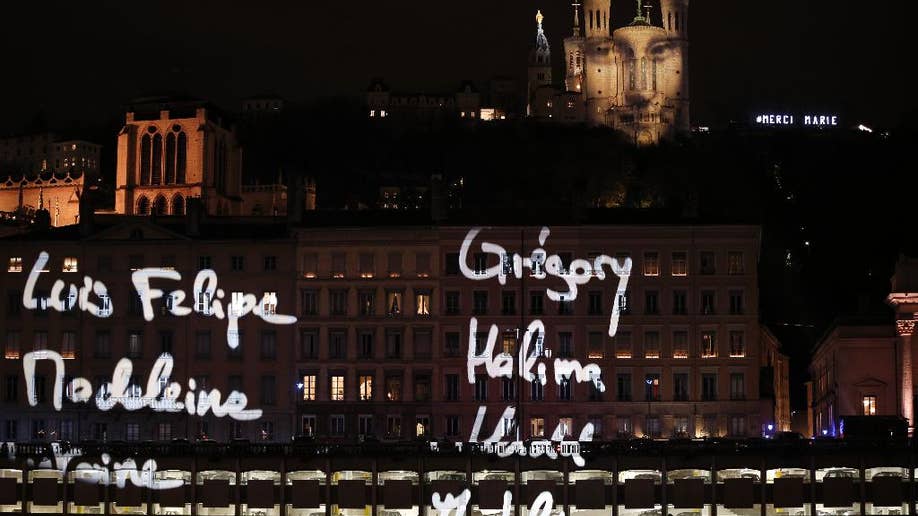 #MERCI MARIE
Luis Felipe
Madeleine
Grégory
Halima